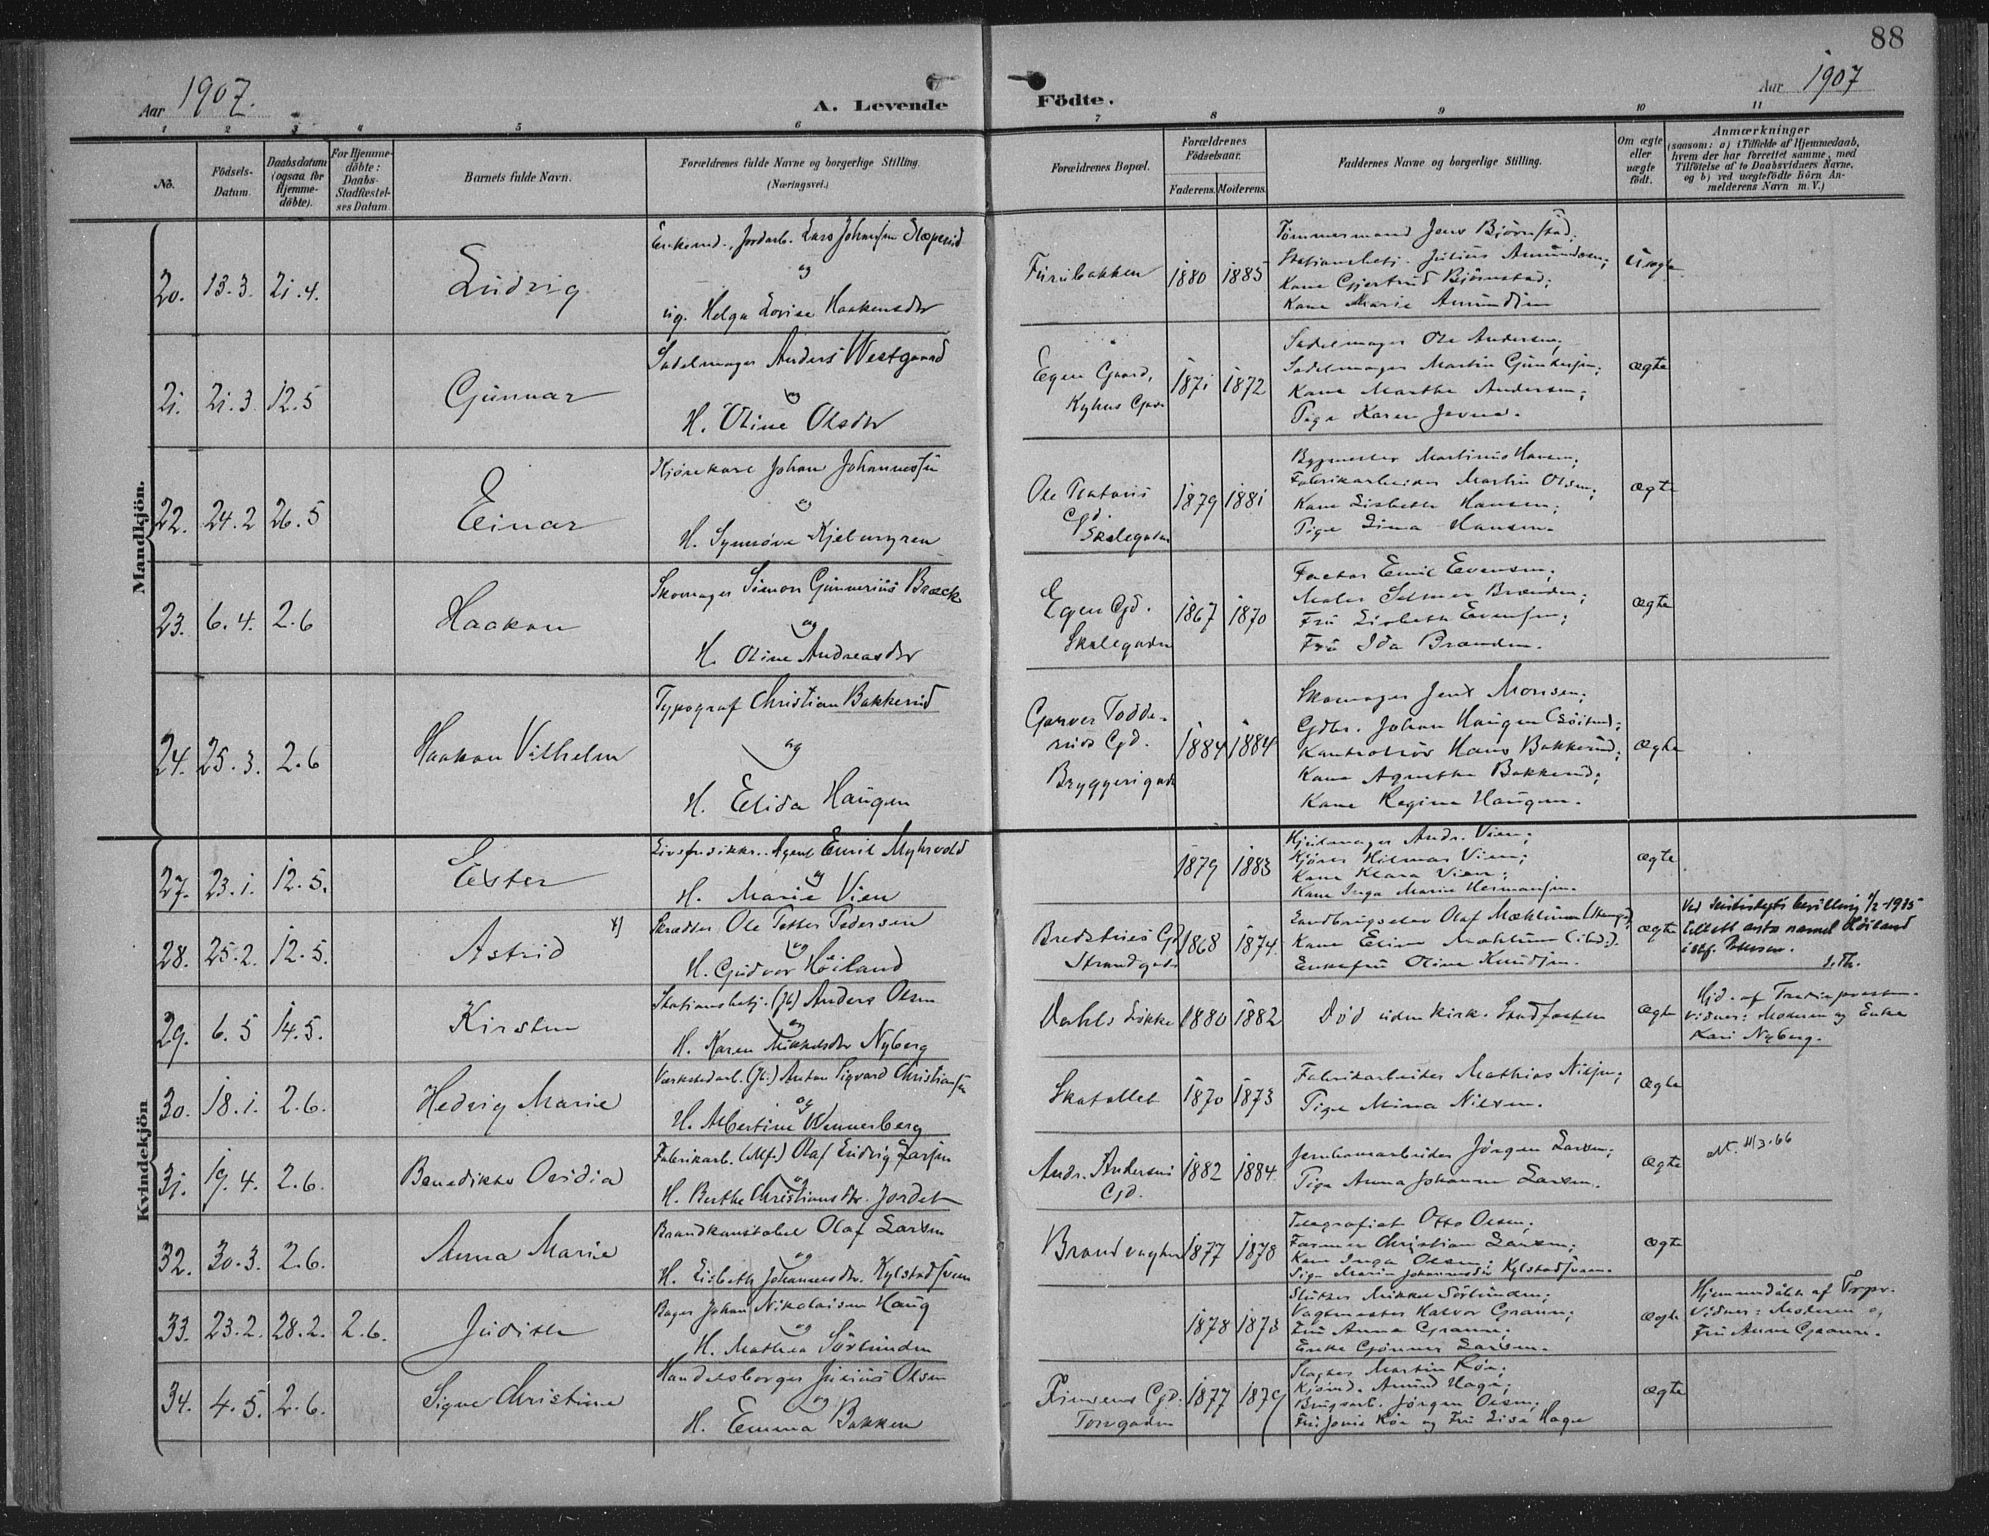 88
Aar 1907.
A. Levende Födte.
Aar 1907
1 2 3 4 5 6 7 8 9 10 11
No.
Födsels-Datum.
Daabsdatum (ogsaa for Hjemmedöbte).
For Hjemmedöbte: Daabs-Stadfæstelses Datum.
Barnets fulde Navn.
Forældrenes fulde Navne og borgerlige Stilling. (Næringsvei.)
Forældrenes Bopæl.
Forældrenes Födselsaar.
Faderens. Moderens.
Faddernes Navne og borgerlige Stilling.
Om ægte eller uægte födt.
Anmærkninger
(saasom: a) i Tilfælde af Hjemmedaab, hvem der har forrettet samme, med Tilföielse af to Daabsvidners Navne, og b) ved uægtefödte Börn Anmelderens Navn m. V.)
Mandkjön.
20. 13.3. 21.4.
Ludvig
Jordarb. Lars Johansen
og
ug. Helga Lovise Haakensdtr
Furubakken
1880 1885
Tömmermand Jens Björnstad;
Stationsbetj. Julius Amundsen;
Kone Gjertrud Björnstad;
Kone Marie Amundsen
Uægte
21. 21.3. 12.5
Gunnar
Sadelmager Anders Westgaard
og
H. Oline Olsdtr
Egen Gaard,
1871 1872
Sadelmager Ole Andersen;
Sadelmager Martin
Kone Marthe Andersen;
Pige Karen
ægte
22. 24.2 26.5
Einar
Kjörekarl Johan Johannessen
og
H. Synnöve
Ole
Gd.
Skolegaden
1879 1881
Bygmester Martinus Hansen;
Fabrikarbeider Martin Olsen;
Kone Lisbeth Hansen;
Pige Lina Hansen.
ægte
23. 6.4. 2.6
Haakon
Skomager Simon Gunnerius Bræck
og
H. Oline Andreasdtr
Egen Gd.
Skolegaden
1867 1870
Factor Emil Evensen;
Maler Selmer Brænden;
Fru Lisbeth Evensen;
Fru Ida Brænden.
ægte
24. 25.3. 2.6
Haakon Vilhelm
Typograf Christian Bakkerud
og
H. Elida Haugen
Garver
Gd.
Bryggerigaden
1884 1884
Skomager Jens Monsen;
Gdbr. Johan Haugen
Kontrollör Hans Bakkerud;
Kone Agnethe Bakkerud;
Kone Regine Haugen.
Ægte
Kvindekjön
27. 23.1. 12.5.
Ester
Agent Emil Myhrvold
og
H. Marie Vien
1879 1883
Hjulmager Andr. Vien;
Kjörer Hilmar Vien;
Kone Klara Vien;
Kone Inga Marie Hermansen.
ægte
28. 25.2. 12.5.
Astrid x)
Skrædder Ole Petter Pedersen
og
H. Gudvor Höiland
Gd
Strandgade
1868 1874
Landbrugselev Olaf Mæhlum (Stange);
Kone Eline Mæhlum (ibd.).
Enkefru Oline Knudsen.
ægte
bevilling 1/2 1915
tillatt anta navnet Höiland
i stf. Petersen.
29. 6.5 14.5.
Kirsten
Stationsbetj. (Jb) Anders Olsen
og
H. Karen Mikkelsdtr Nyberg
Dahls Lökke
1880 1882
Död uden kirk. Stadfæstelse
ægte
Hjd. af
Vidner: Moderen og Enke
Kari Nyberg.
30. 18.1. 2.6.
Hedvig Marie
Værkstedarb. (Jb.) Anton Sigvard Christiansen
og
H. Albertine Wennerberg
Skatollet
1870 1873
Fabrikarbeider Mathias Nilsen;
Pige Mina Nilsen.
ægte
31. 19.4. 2.6.
Benedikte Ovidia
Fabrikarb. (Mf.) Olaf Ludvig Larsen
og
H. Berthe Christiansdtr. Jordet
Andr. Andersens
Gd.
1882 1884.
Jernbanearbeider Jörgen Larsen;
Pige Anna Johanne Larsen.
ægte
11/3-66
32. 30.3. 2.6.
Anna Marie
Brandkonstabel Olaf Larsen
og
H. Lisbeth Johannesdtr. Kylstadsveen
Brandvagten
1877 1878
Telegrafist Otto Olsen;
Farmer Christian Larsen;
Kone Inga Olsen;
Pige Marie Johannesdtr Kylstadsveen.
ægte
33. 23.2. 28.2. 2.6.
Judith
Bager Johan Nikolaisen Haug
og
H. Mathea Sörlunden
1878 1873
Slutter Mikkel Sörlunden;
Vagtmester Halvor Graum;
Fru Anna Graum;
Enke Gunner Larsen.
ægte
Hjemmedöbt af
Vidner: Moderen og
Fru Anna Graum.
34. 4.5. 2.6.
Signe Christine
Handelsborger Julius Olsen
og
H. Emma Bakken
Gd.
Torvgaden
1877 1879
Slagter Martin Röe;
Kjöbmd. Amund Hage;
Brugsarb. Jörgen Olsen;
Fru Jonie Röe og Fru Lise Hage
ægte